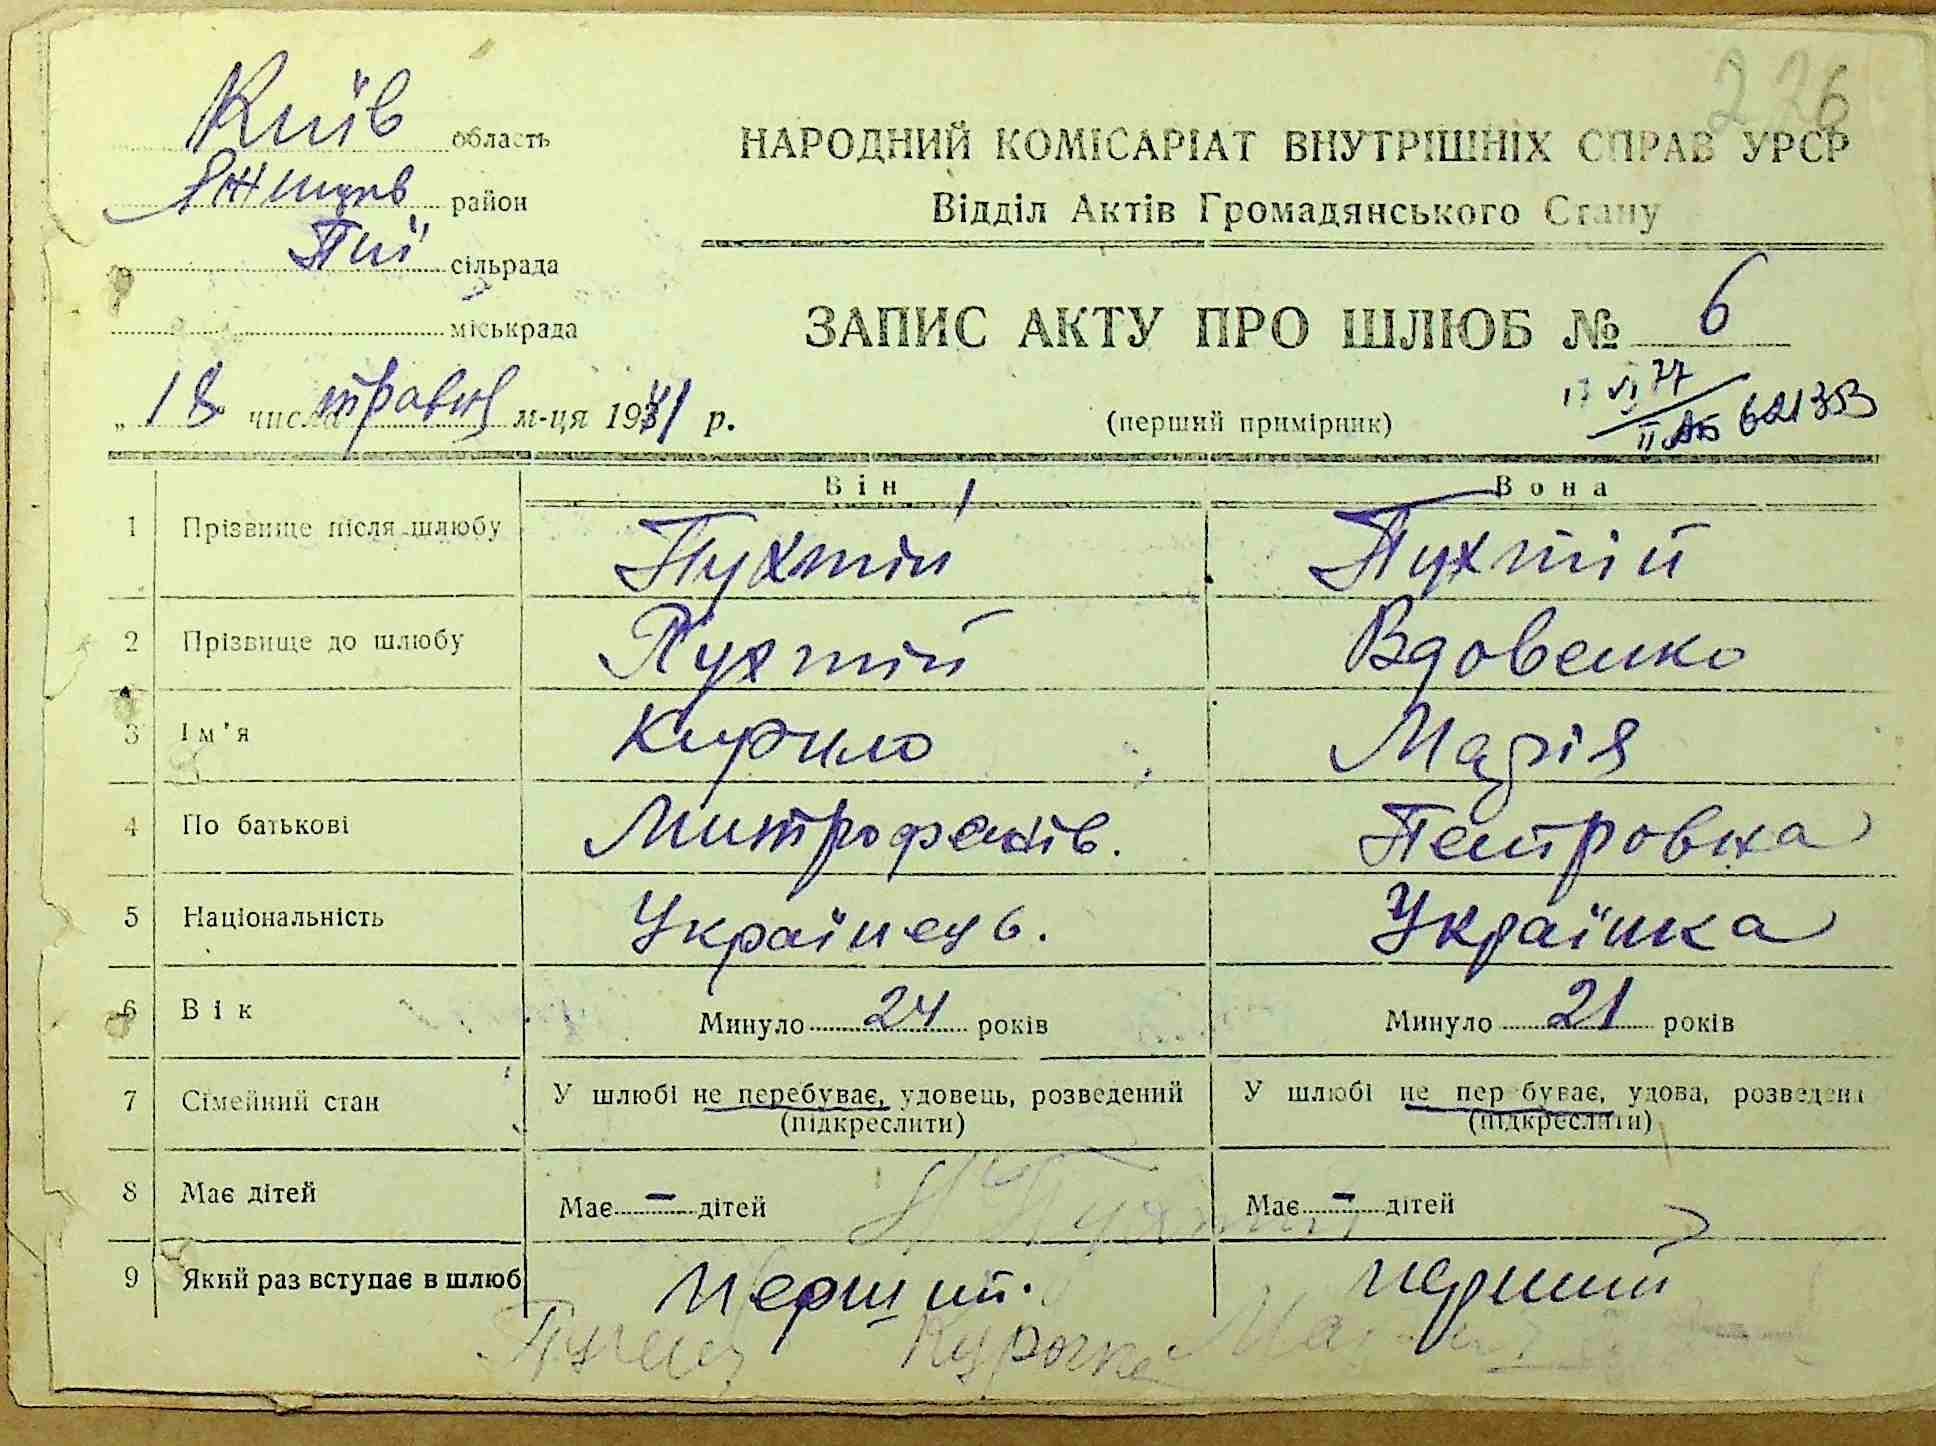 226
Київ область
НАРОДНИЙ КОМІСАРІАТ ВНУТРІШНІХ СПРАВ УРСР
район
Відділ Актів Громадянського Стану
Пії сільрада
міськрада
ЗАПИС АКТУ ПРО ШЛЮБ № 6
„ 18 числа травня м-ця 1941 р.
(перший примірник)
17 VI 77
II АБ 621353
Він Вона
1 Прізвище після шлюбу Пухтій Пухтій
2 Прізвище до шлюбу Пухтій Вдовенко
3 Ім'я Кирило Марія
4 По батькові Митрофанів. Петровна
5 Національність Українець. Українка
6 Вік Минуло 24 років Минуло 21 років
7 Сімейний стан У шлюбі не перебуває, удовець, розведений У шлюбі не перебуває, удова, розведена
(підкреслити) (підкреслити)
8 Має дітей Має – дітей Має – дітей
9 Який раз вступає в шлюб Перший. перший